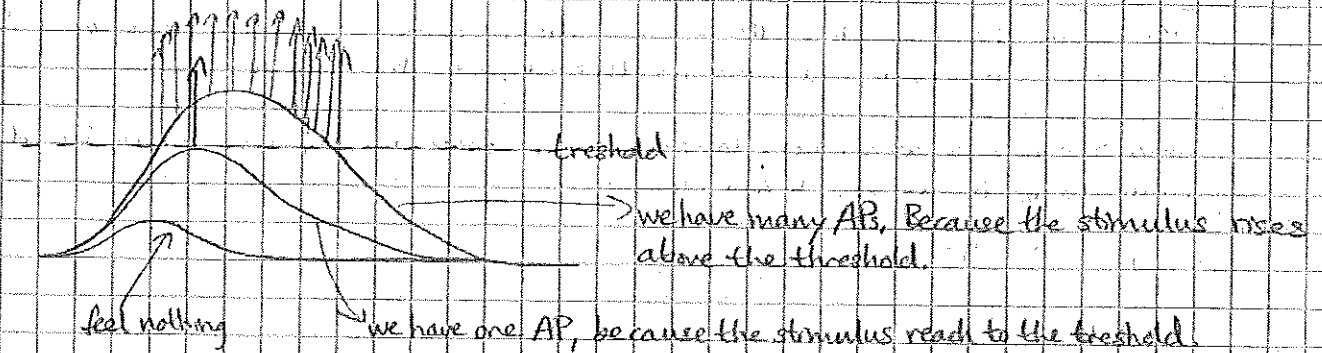 treshold
we have many APs, Because the stimulus rises
above the threshold.
feel nothing
we have one AP, because the stimulus reach to the treshold.